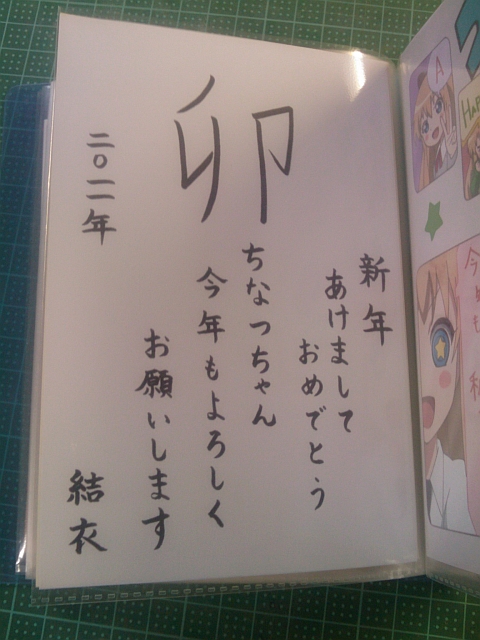 卯
新年
あけまして
おめでとう
ちなつちゃん
今年もよろしく
お願いします
二〇一一年
結衣
A